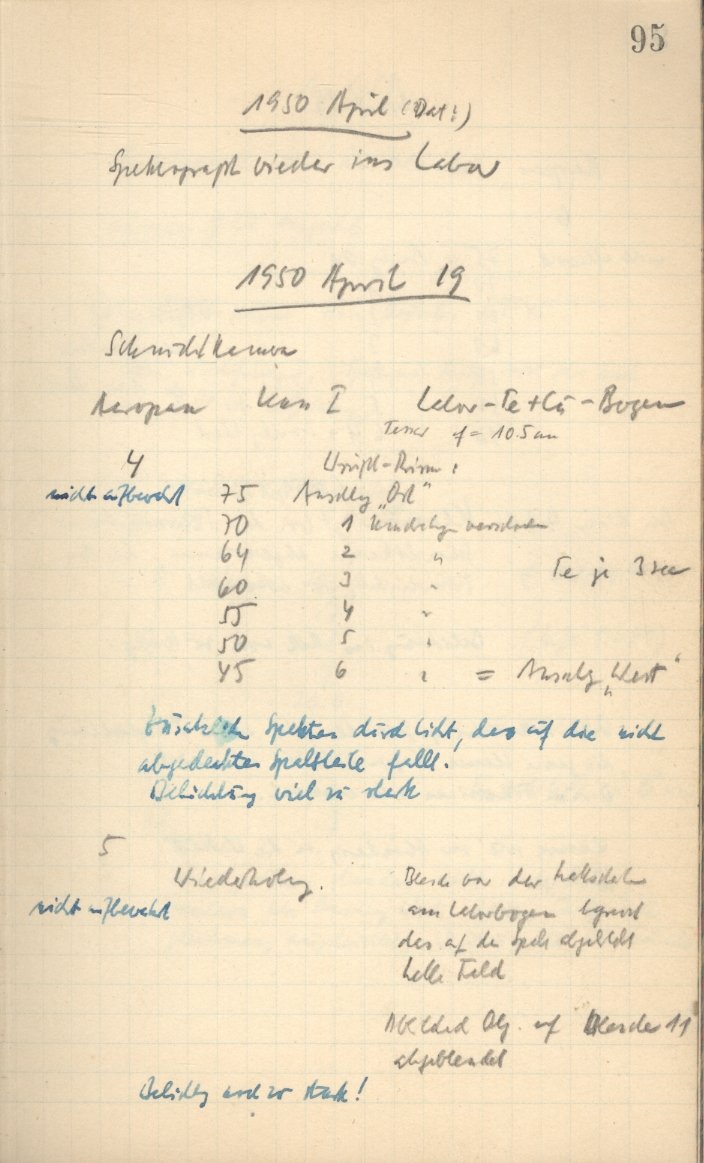 95
1950 April (Dat!)
Spektrograph wieder ins Labor
1950 April 19
Schmidtkamera
Aeropan Kass I Labor-Fe+Cu-Bogen
Tessar f = 10.5 cm
4
nicht aufbewahrt 75 Anschlag "Ost"
70 1 verschoben
64 2 "
60 3 " Fe je 3 sec
55 4 "
50 5 "
45 6 " = Anschlag "West"
Zusätzliche Spektren durch Licht, das auf die nicht
abgedeckten Spaltteile fällt.
Belichtung viel zu stark
5
Wiederholung. vor der
nicht aufbewahrt am Laborbogen begrenzt
das auf den Spalt abgebildete
helle Feld
Abbild Obj. auf 11
abgeblendet
Belichtg noch zu stark!